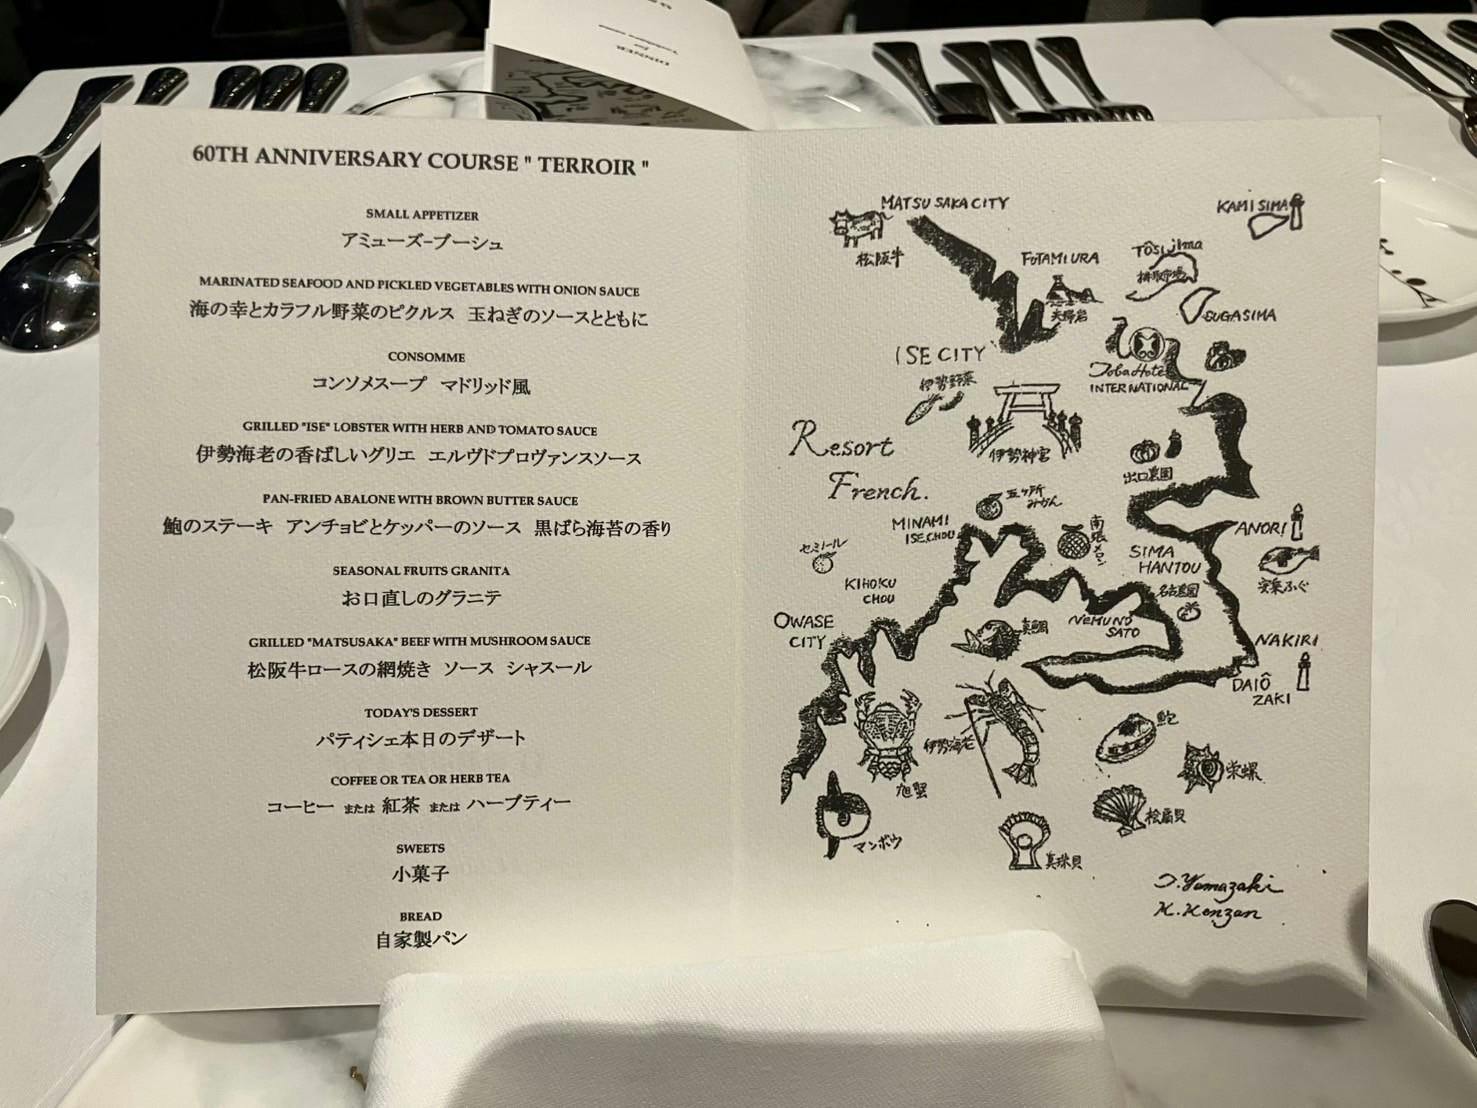 DINNER
for
60TH ANNIVERSARY COURSE " TERROIR "
SMALL APPETIZER
アミューズ-ブーシュ
MARINATED SEAFOOD AND PICKLED VEGETABLES WITH ONION SAUCE
海の幸とカラフル野菜のピクルス 玉ねぎのソースとともに
CONSOMME
コンソメスープ マドリッド風
GRILLED "ISE" LOBSTER WITH HERB AND TOMATO SAUCE
伊勢海老の香ばしいグリエ エルヴドプロヴァンスソース
PAN-FRIED ABALONE WITH BROWN BUTTER SAUCE
鮑のステーキ アンチョビとケッパーのソース 黒ばら海苔の香り
SEASONAL FRUITS GRANITA
お口直しのグラニテ
GRILLED "MATSUSAKA" BEEF WITH MUSHROOM SAUCE
松阪牛ロースの網焼き ソース シャスール
TODAY'S DESSERT
パティシェ本日のデザート
COFFEE OR TEA OR HERB TEA
コーヒー または 紅茶 または ハーブティー
SWEETS
小菓子
BREAD
自家製パン
MATSUSAKA CITY
松阪牛
KAMISIMA
FUTAMIURA
夫婦岩
TÔSIJIMA
SUGASIMA
ISE CITY
伊勢野菜
Toba Hotel
INTERNATIONAL
伊勢神宮
Resort
French.
出口農園
五ヶ所
みかん
MINAMI
ISECHOU
南張メロン
セミノール
KIHOKU
CHOU
ANORI
安乗ふぐ
SIMA
HANTOU
OWASE
CITY
真鯛
NEMUNO
SATO
NAKIRI
DAIÔ
ZAKI
伊勢海老
鮑
旭蟹
栄螺
マンボウ
桧扇貝
真珠貝
T.Yamazaki
K.Kenzan